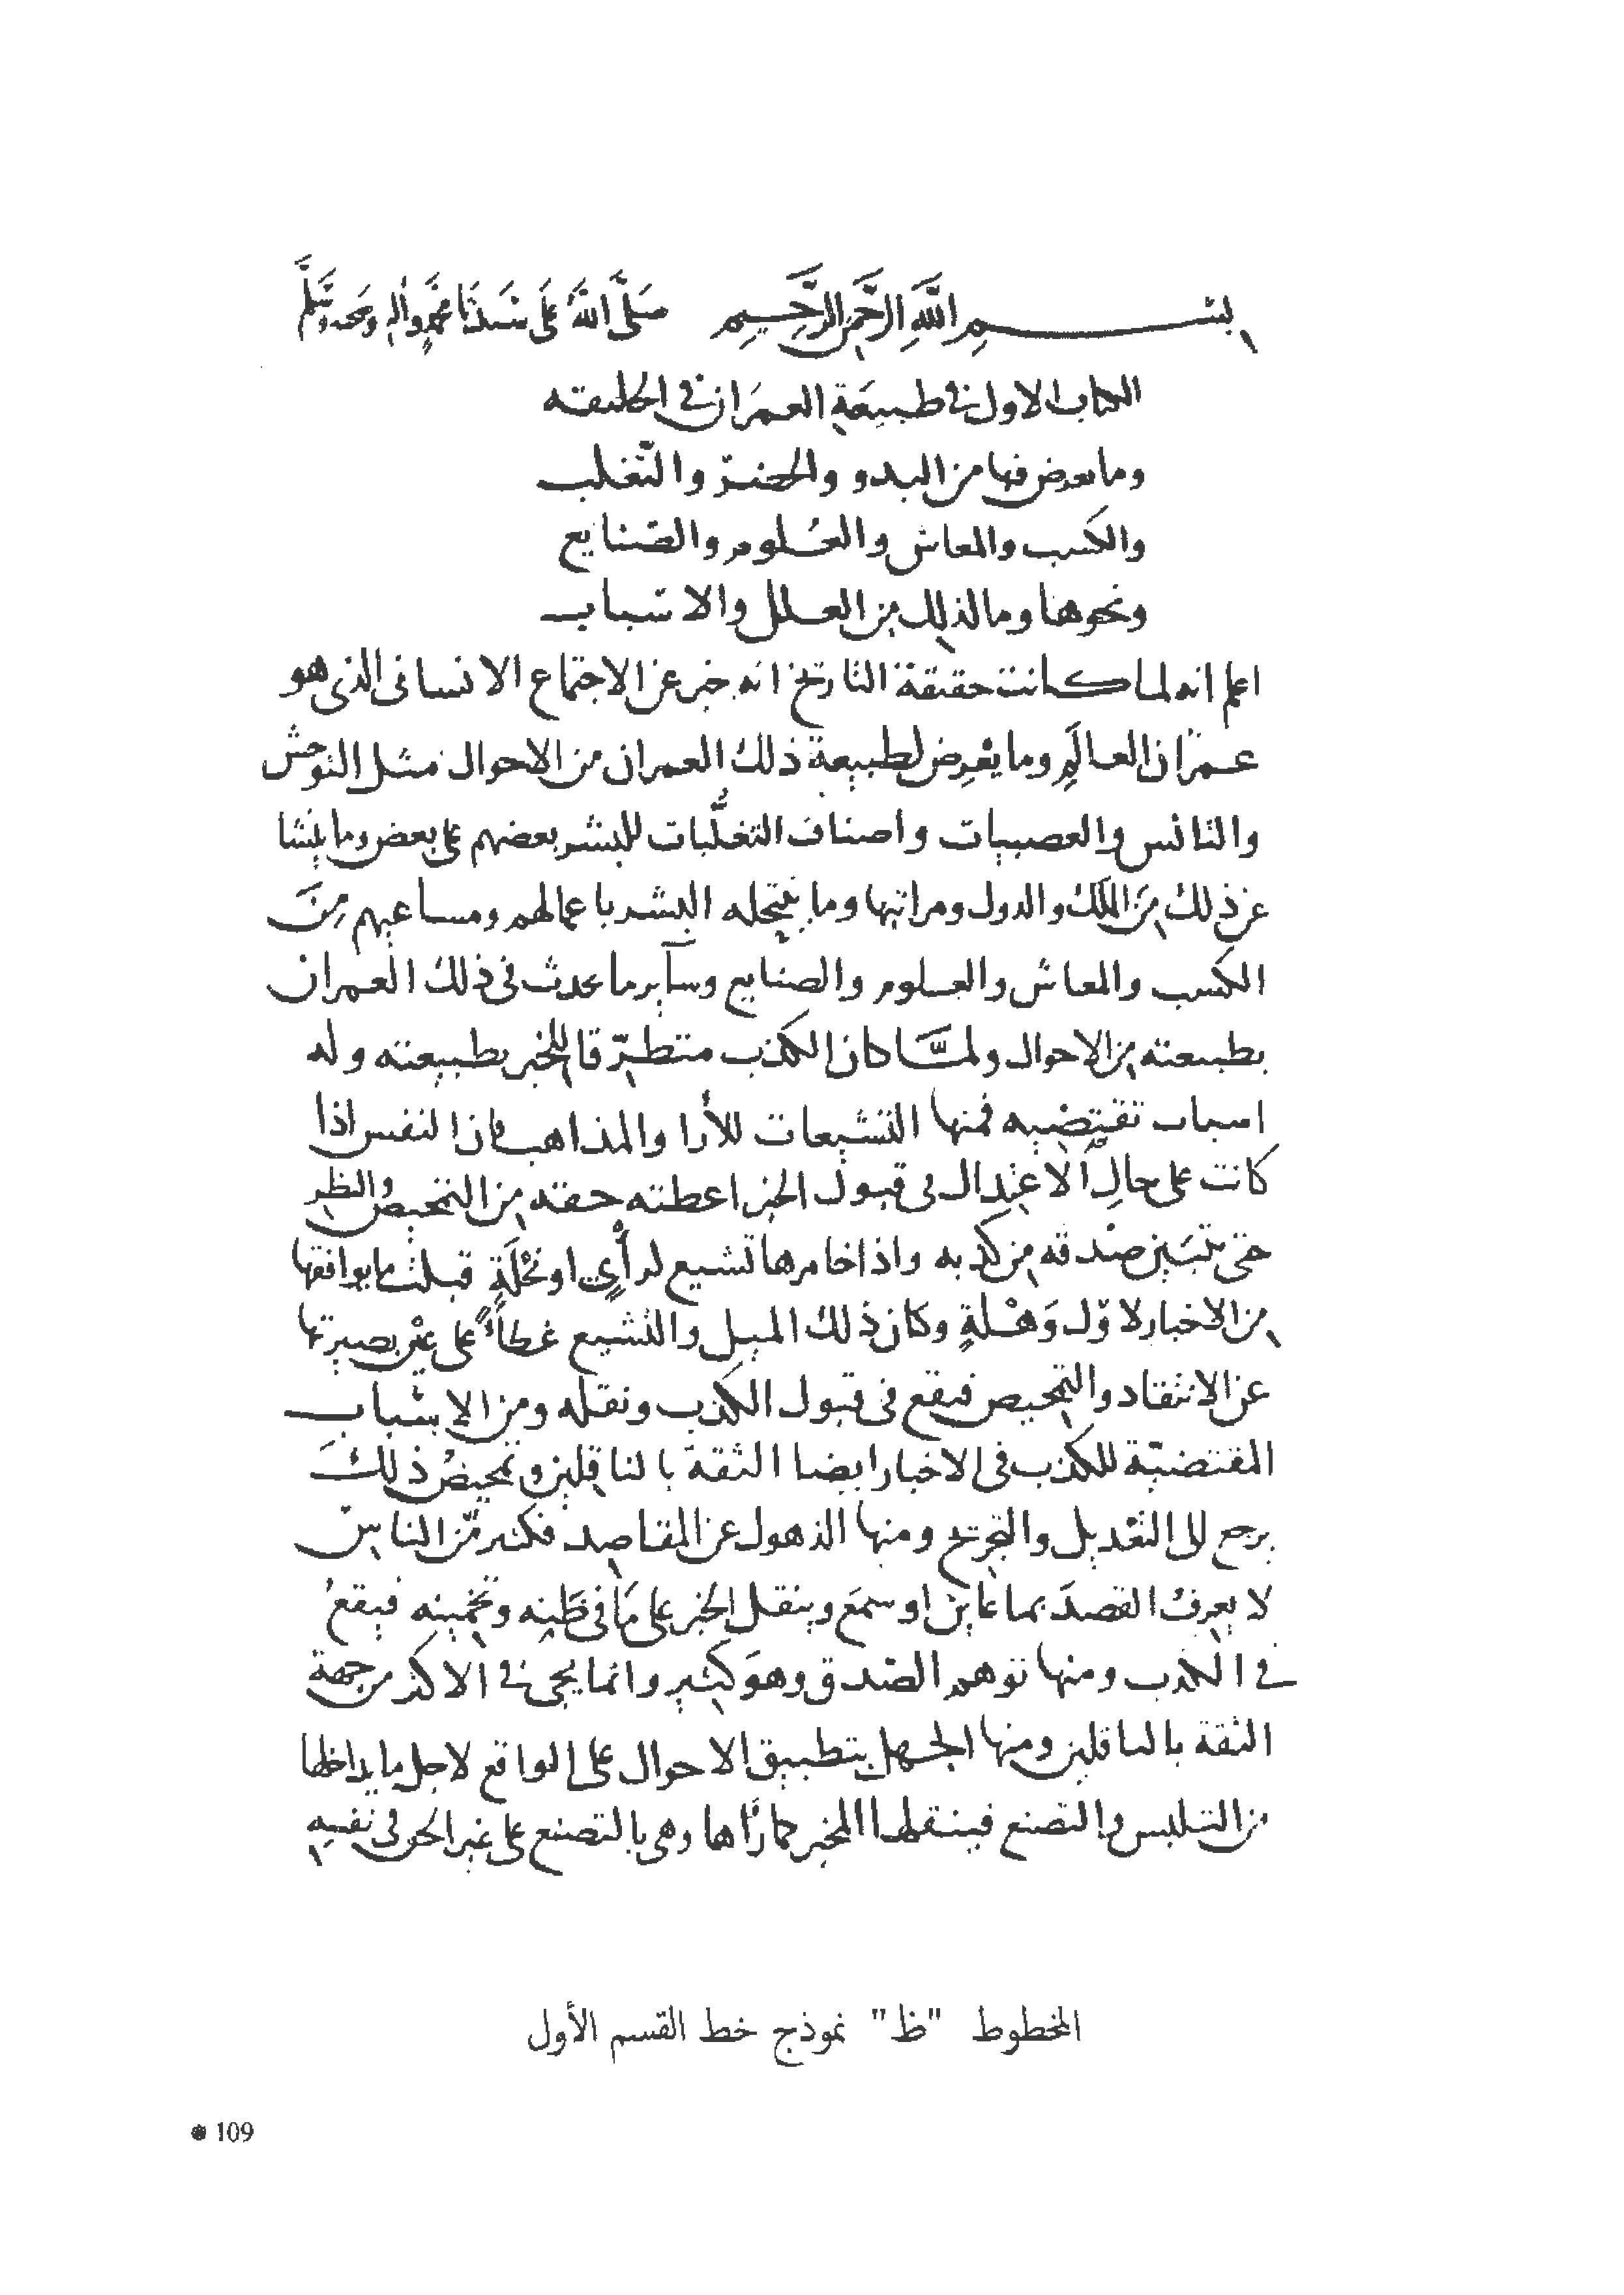 بسم اللَّهِ الرَّحْمَنِ الرَّحِيمِ صَلَّى اللَّهُ عَلَى سَيِّدِنَا مُحَمَّدٍ وآلِهِ وصحبه وسَلَّم
الكتاب الاول في طبيعَةِ العمرَان في الخليقه
وما يعرض فيها من البدو والحضر والتّغلب
والكسب والمعاش والعُلوم والصّنايع
ونحوها وما لذلك من العلل والاسباب
اعلم انه لما كانت حقيقة التاريخ انه خبر عن الاجتماع الانسانى الذى هو
عمرَان العالَمِ وما يعْرِض لطبيعة ذلك العمران من الاحوال مثل التوحش
والتانس والعصبيات واصناف التغلُّبات للبشر بعضهم على بعض وما ينشا
عن ذلك مِنَ المُلْك والدول ومراتبها وما ينتحله البشر باعمالهم ومساعيهم مِنَ
الكسب والمعاش والعلوم والصنايع وسآير ما يحدث فى ذلك العمران
بطبيعته من الاحوال ولمَّا كان الكذب متطرّقا للخبر بطبيعته وله
اسباب تقتضيه فمنها التشيعات للأرا والمذاهب فان النفس اذا
كانت على حالِ الاعتدال فى قبول الخبر اعطته حقه من التمحيص والنظر
حتى تتبَين صدقه من كذبه واذا خامرها تشيع لرأْيٍ او نِحْلَةٍ قبلت ما يوافقها
من الاخبار لاوّل وَهْلةٍ وكان ذلك الميل والتشيع غطاءً على عيْن بصيرتها
عن الانتقاد والتمحيص فيقع فى قبول الكذب ونقله ومن الاسْباب
المقتضيَة للكذب فى الاخبار ايضا الثقة بالناقلين وتمحيصُ ذلكَ
يرجع الى التعْديل والتجريح ومنها الذهول عن المقاصد فكثير مّن الناس
لا يعرفُ القصدَ بما عاين او سمعَ وينقل الخبر على مَا فى ظَنه وتخمينه فيقعُ
فى الكذب ومنها توهم الصّدق وهوَ كثير وانما يجى فى الاكثر من جهة
الثقة بالناقلين ومنها الجهل بتطبيق الاحوال على الواقع لاجل ما يداخلها
من التلبيس والتصنع فينقلها المخبر كما رأَاها وهى بالتصنع على غير الحق فى نفسِهِ
المخطوط "ظ" نموذج خط القسم الأول
109